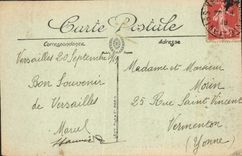 Carte Postale
Correspondance
Adresse
Versailles 20 Septembre
Bon Souvenir
de Versailles
Madame et Monsieur
Moïn
25 Rue Saint Vincent
Vermenton
(Yonne)